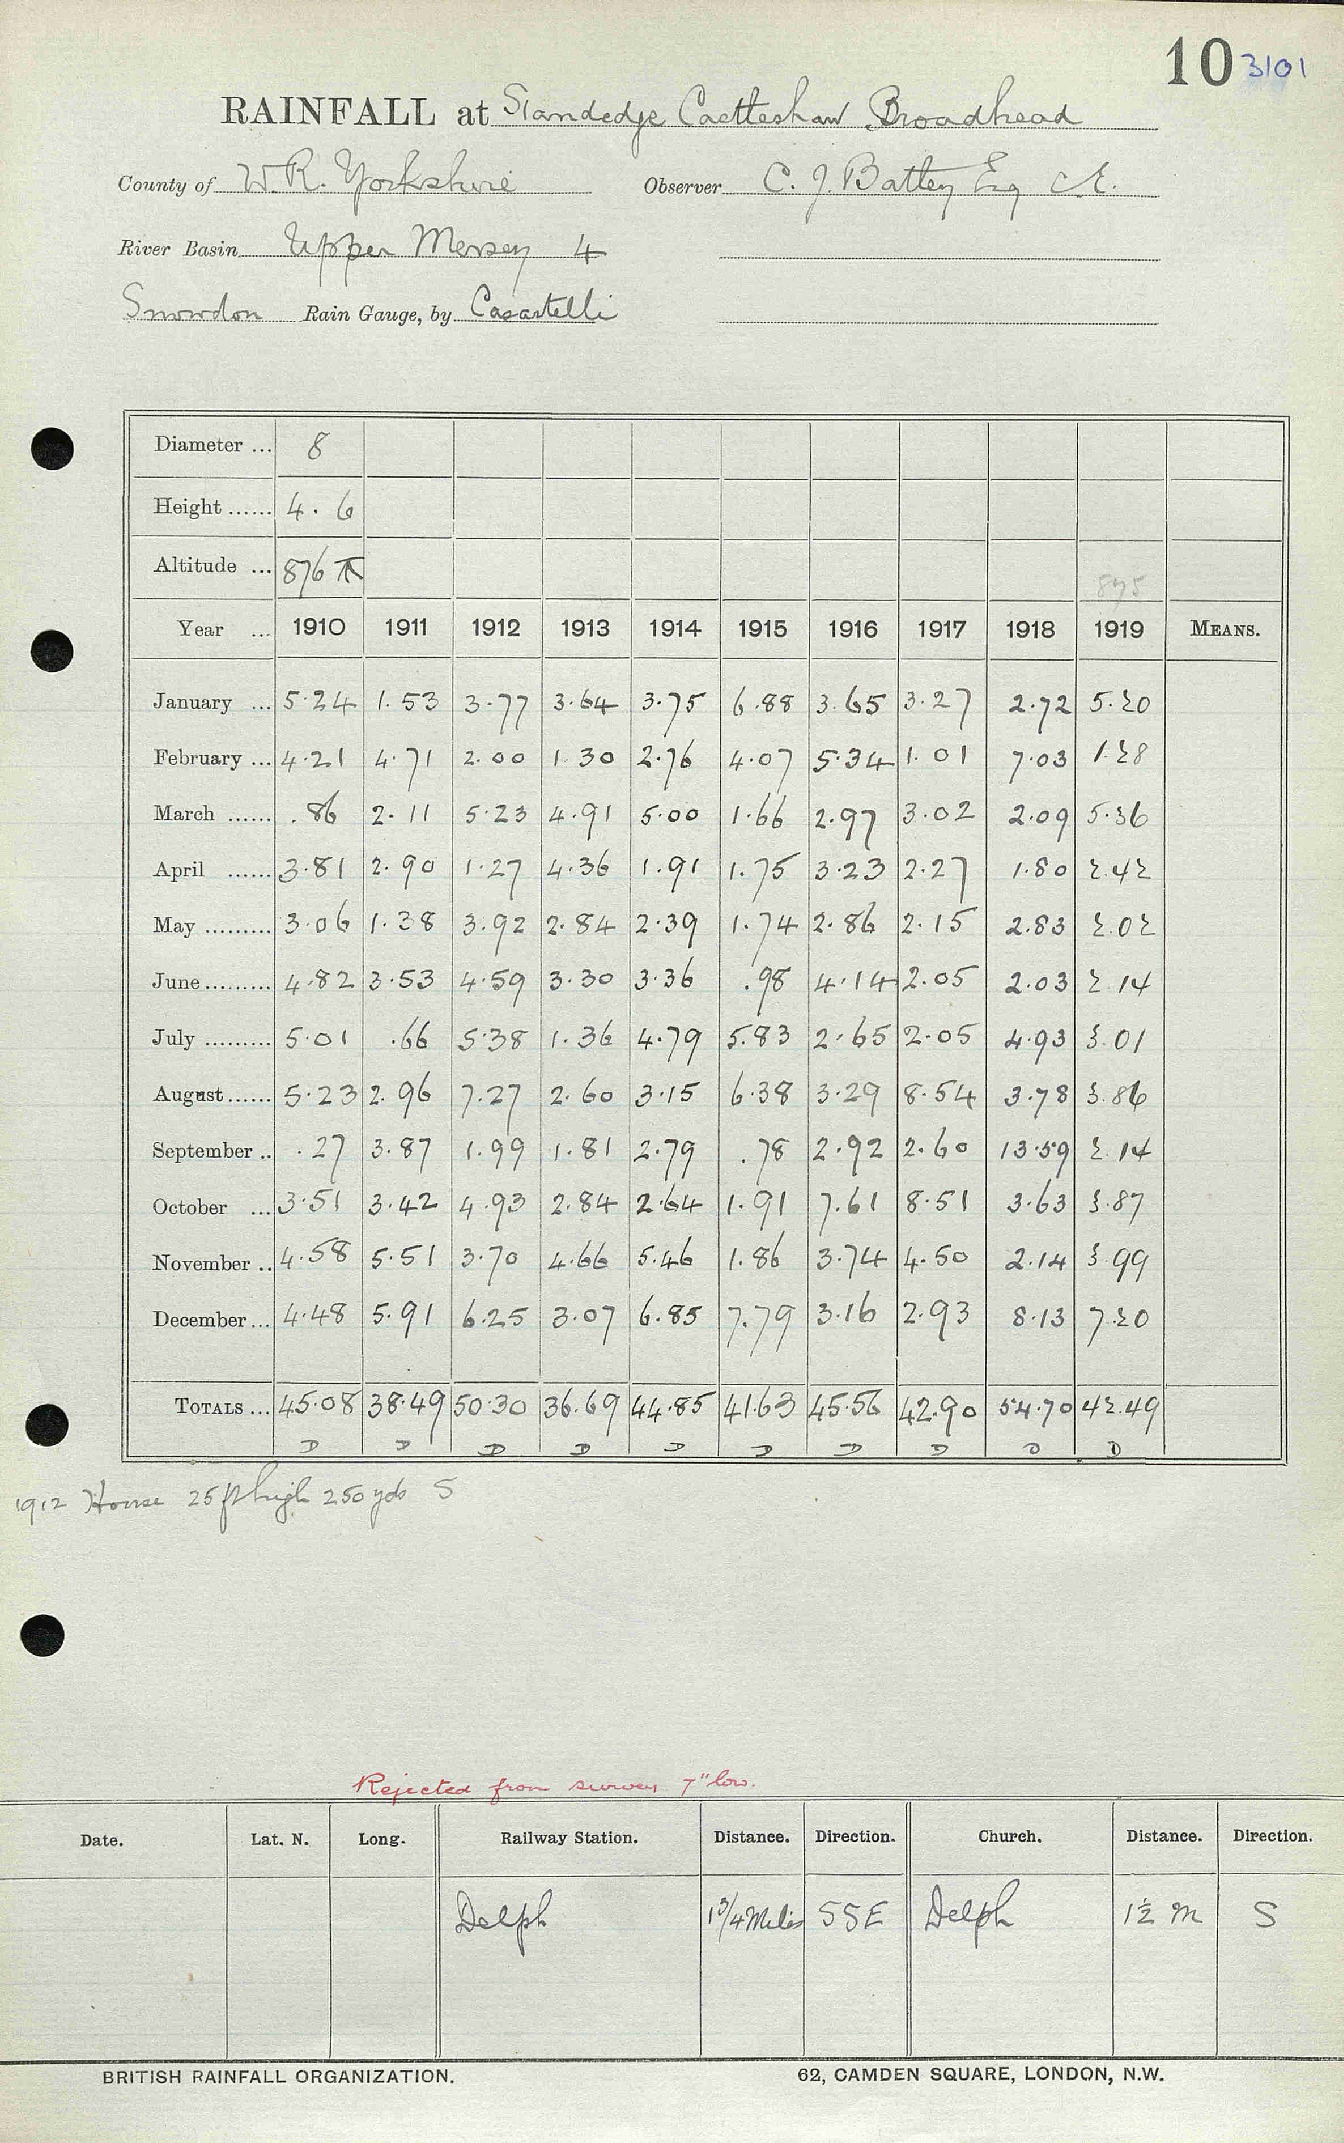 10 3101
RAINFALL at Standedge Castleshaw Broadhead
County of W.R. Yorkshire Observer C. J. Battey Esq C.E.
River Basin Upper Mersey 4
Snowdon Rain Gauge, by Casartelli
Diameter ... 8
Height ...... 4. 6
Altitude ... 876 875
Year ... 1910 1911 1912 1913 1914 1915 1916 1917 1918 1919 MEANS.
January ... 5.24 1.53 3.77 3.64 3.75 6.88 3.65 3.27 2.72 5.20
February ... 4.21 4.71 2.00 1.30 2.76 4.07 5.34 1.01 7.03 1.28
March ...... .86 2.11 5.23 4.91 5.00 1.66 2.97 3.02 2.09 5.36
April ...... 3.81 2.90 1.27 4.36 1.91 1.75 3.23 2.27 1.80 2.42
May ......... 3.06 1.38 3.92 2.84 2.39 1.74 2.86 2.15 2.83 2.02
June ......... 4.82 3.53 4.59 3.30 3.36 .98 4.14 2.05 2.03 2.14
July ......... 5.01 .66 5.38 1.36 4.79 5.83 2.65 2.05 4.93 3.01
August ...... 5.23 2.96 7.27 2.60 3.15 6.38 3.29 8.54 3.78 3.86
September .. .27 3.87 1.99 1.81 2.79 .78 2.92 2.60 13.59 2.14
October ... 3.51 3.42 4.93 2.84 2.64 1.91 7.61 8.51 3.63 3.87
November .. 4.58 5.51 3.70 4.66 5.46 1.86 3.74 4.50 2.14 3.99
December ... 4.48 5.91 6.25 3.07 6.85 7.79 3.16 2.93 8.13 7.20
TOTALS ... 45.08 38.49 50.30 36.69 44.85 41.63 45.56 42.90 54.70 42.49
D D D D D D D D D D
1912 House 25 ft high 250 yds S
Rejected from survey 7" low.
Date. Lat. N. Long. Railway Station. Distance. Direction. Church. Distance. Direction.
Delph 1 3/4 Miles SSE Delph 1½ m S
BRITISH RAINFALL ORGANIZATION. 62, CAMDEN SQUARE, LONDON, N.W.